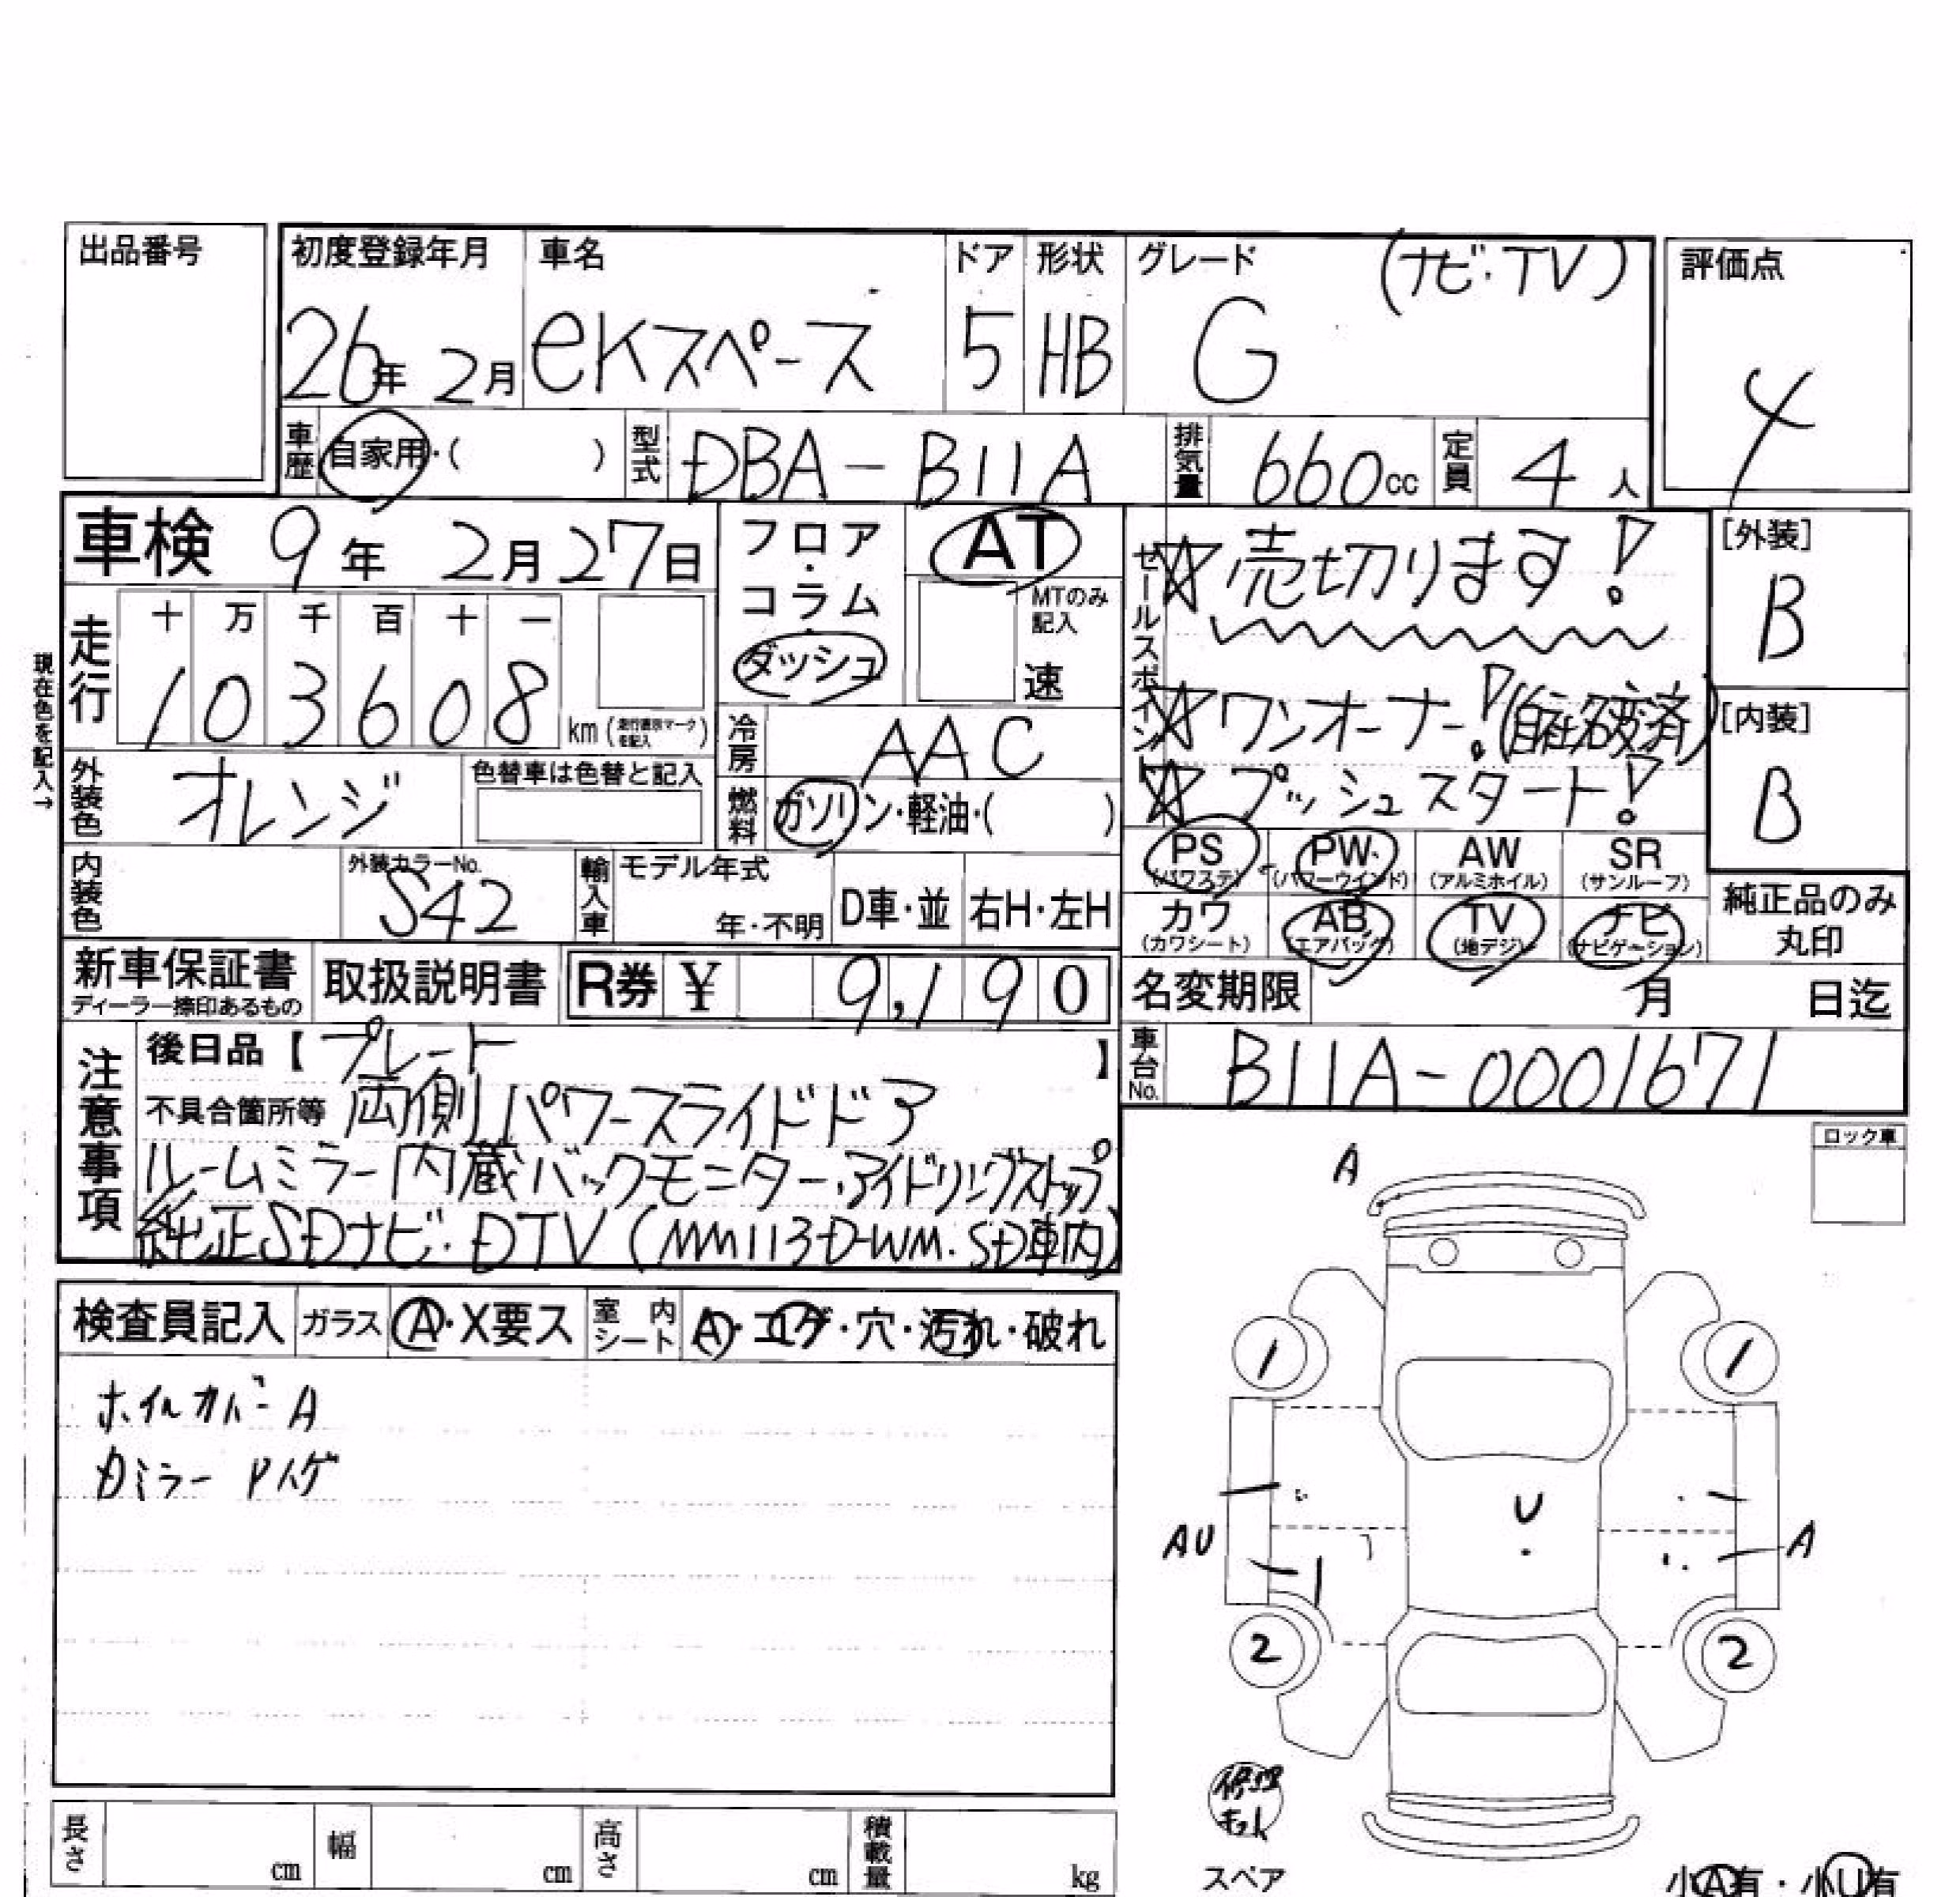 出品番号
初度登録年月 車名 ドア 形状 グレード (ナビ・TV) 評価点
26年 2月 eKスペース 5 HB G 4
車歴 自家用・( ) 型式 DBA-B11A 排気量 660cc 定員 4人
車検 9年 2月27日
フロア・コラム・ダッシュ
AT
MTのみ記入
速
セールスポイント
☆売切ります!
☆ワンオーナー!(自社名変済)
☆プッシュスタート!
[外装] B
[内装] B
現在色を記入→
走行 十 万 千 百 十 一
1 0 3 6 0 8 km (走行表示マークを記入)
冷房 AAC
外装色 オレンジ 色替車は色替と記入
燃料 ガソリン・軽油・( )
内装色 外装カラーNo. S42 輸入車 モデル年式 年・不明 D車・並 右H・左H
PS (パワステ) PW (パワーウインド) AW (アルミホイル) SR (サンルーフ)
カワ (カワシート) AB (エアバッグ) TV (地デジ) ナビ (ナビゲーション)
純正品のみ丸印
新車保証書 ディーラー捺印あるもの 取扱説明書 R券 ¥ 9,190
名変期限 月 日迄
車台No. B11A-0001671
注意事項
後日品【プレート】
不具合箇所等 両側パワースライドドア
ルームミラー内蔵バックモニター・アイドリングストップ
純正SDナビ・DTV(MM113D-WM.SD車内)
ロック車
検査員記入 ガラス A・X要ス 室内シート A・コゲ・穴・汚れ・破れ
ホイルカバーA
ミラー
A
1 1
U
AU A
2 2
修理キット
スペア
小A有・小U有
長さ cm 幅 cm 高さ cm 積載量 kg